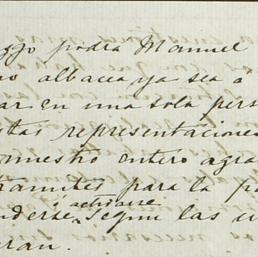 podra Manuel
no albacea ya sea á
ar en una sola pers
stas representaciones
nuestro entero agra
tramites para la p
activarse
enderse, segun las u
aran.